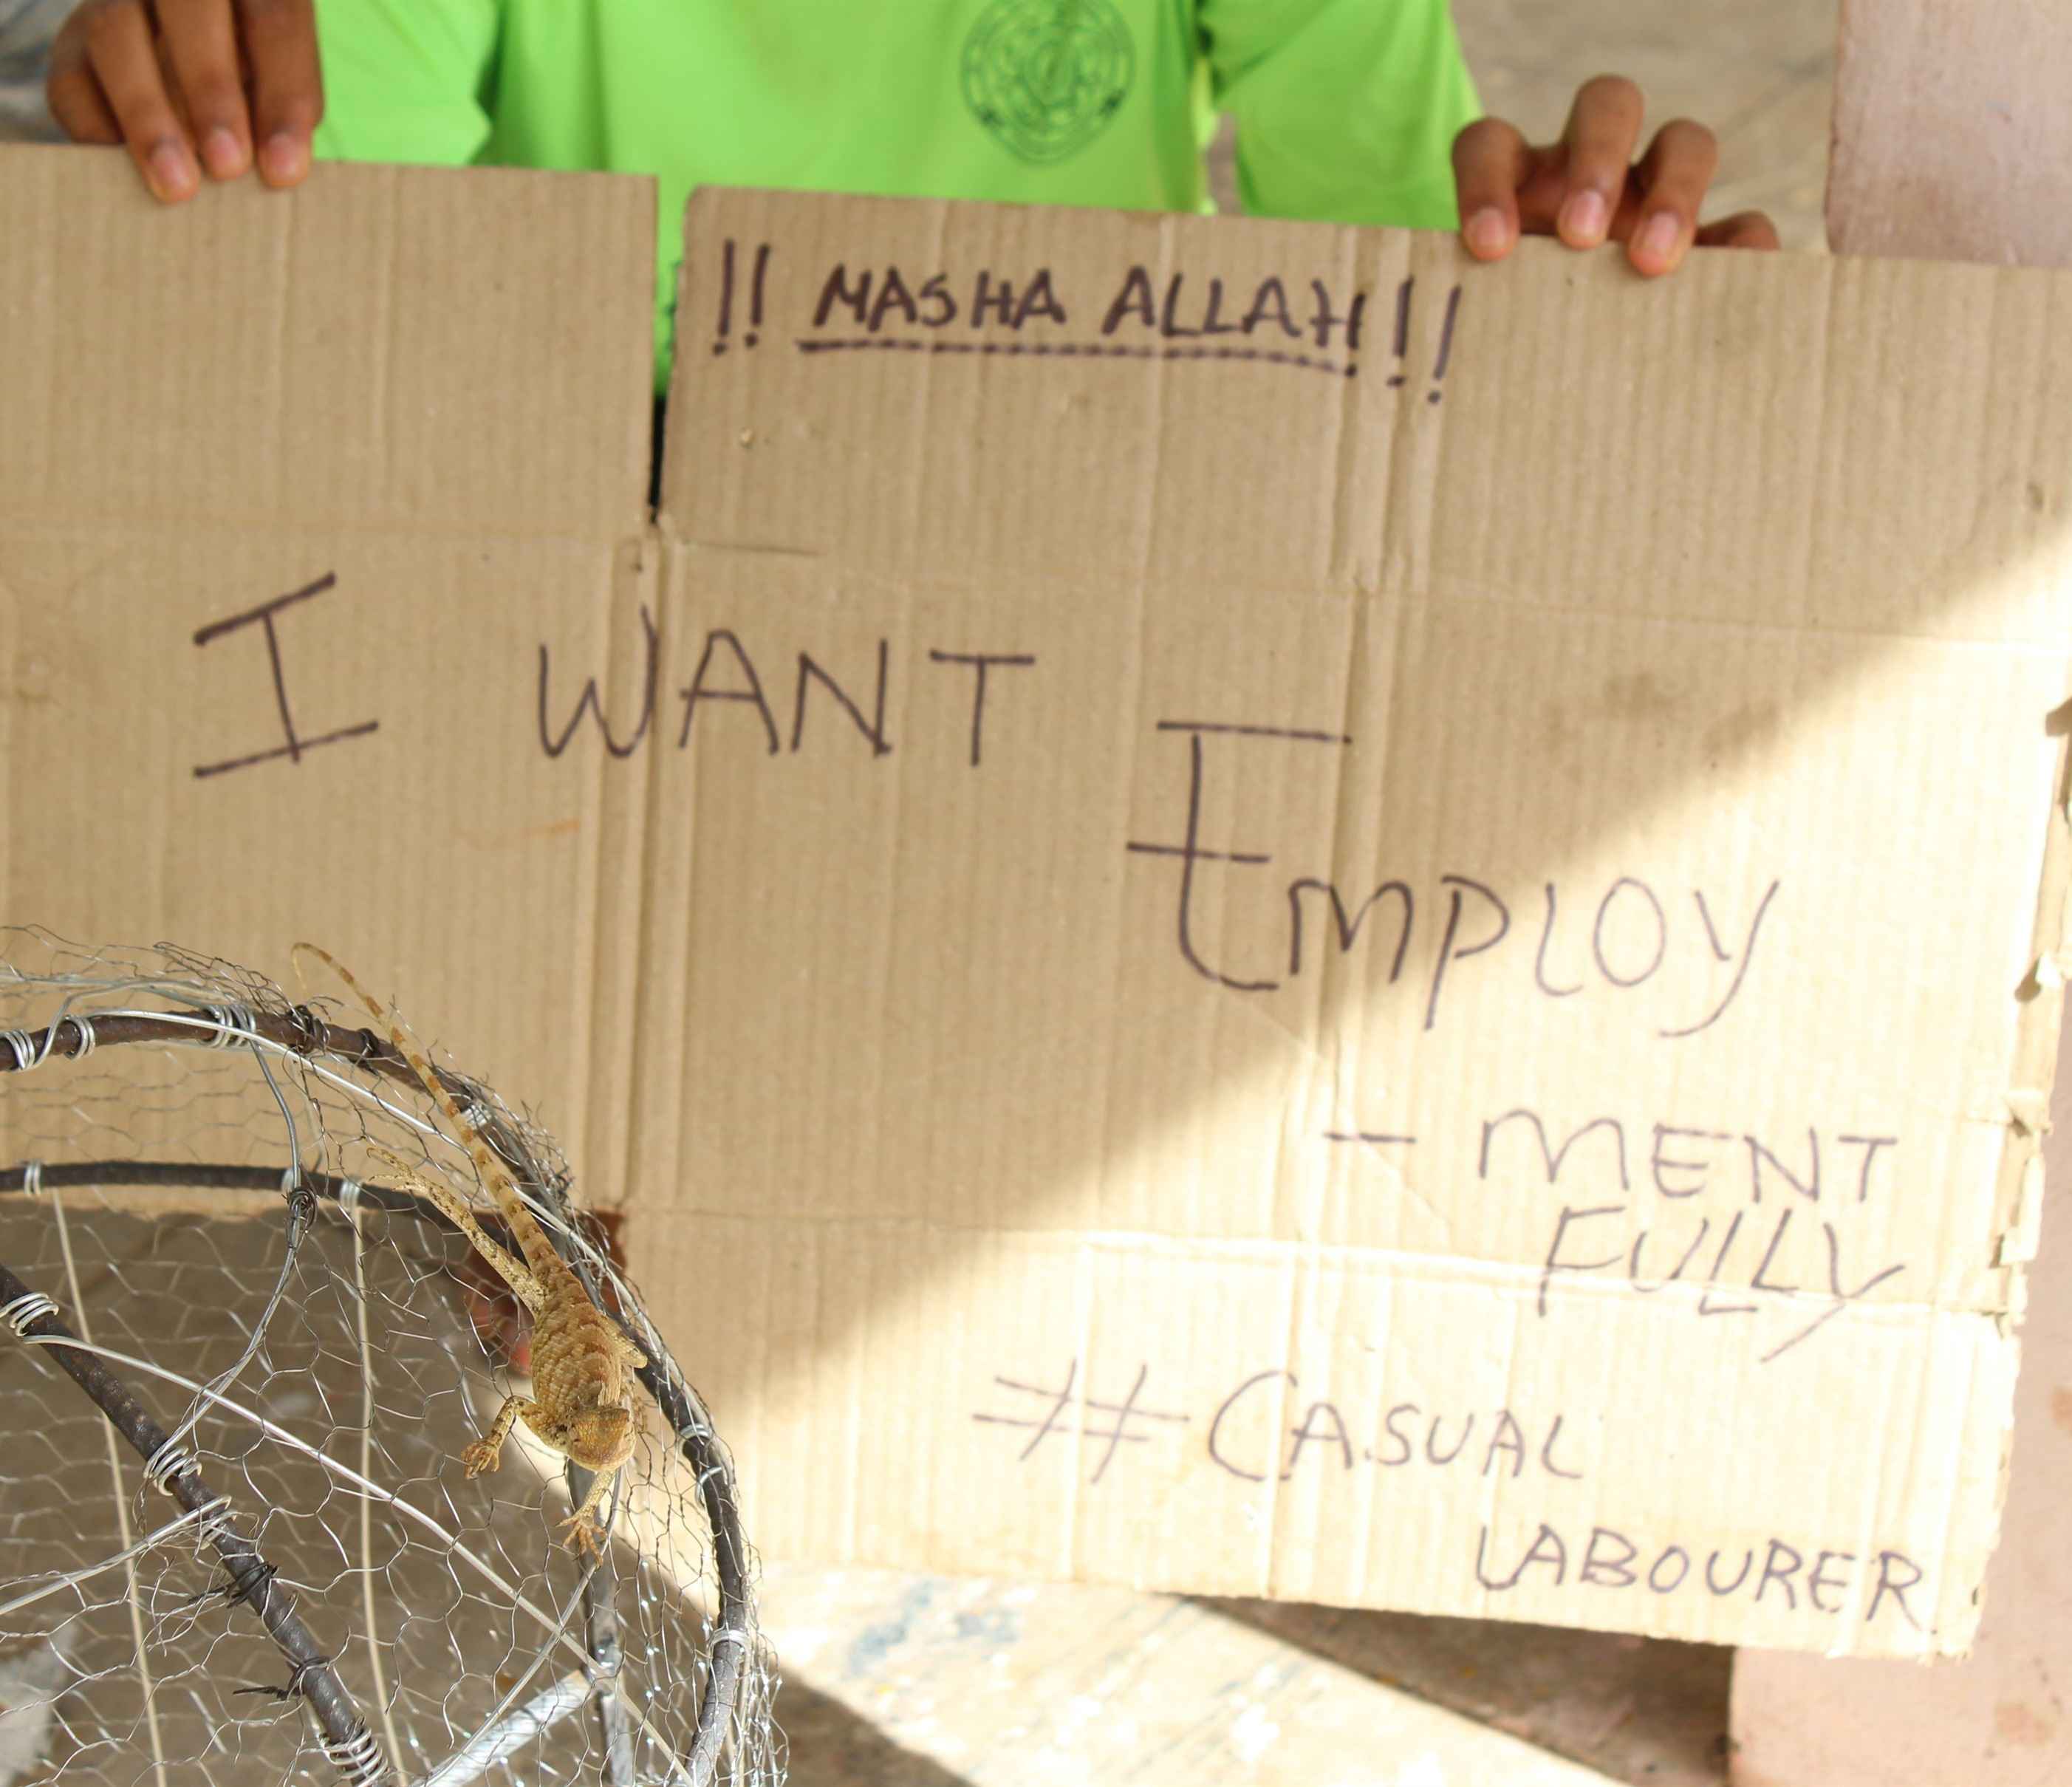 !! MASHA ALLAH!!
I WANT
EMPLOY
- MENT
FULLY
# CASUAL
LABOURER